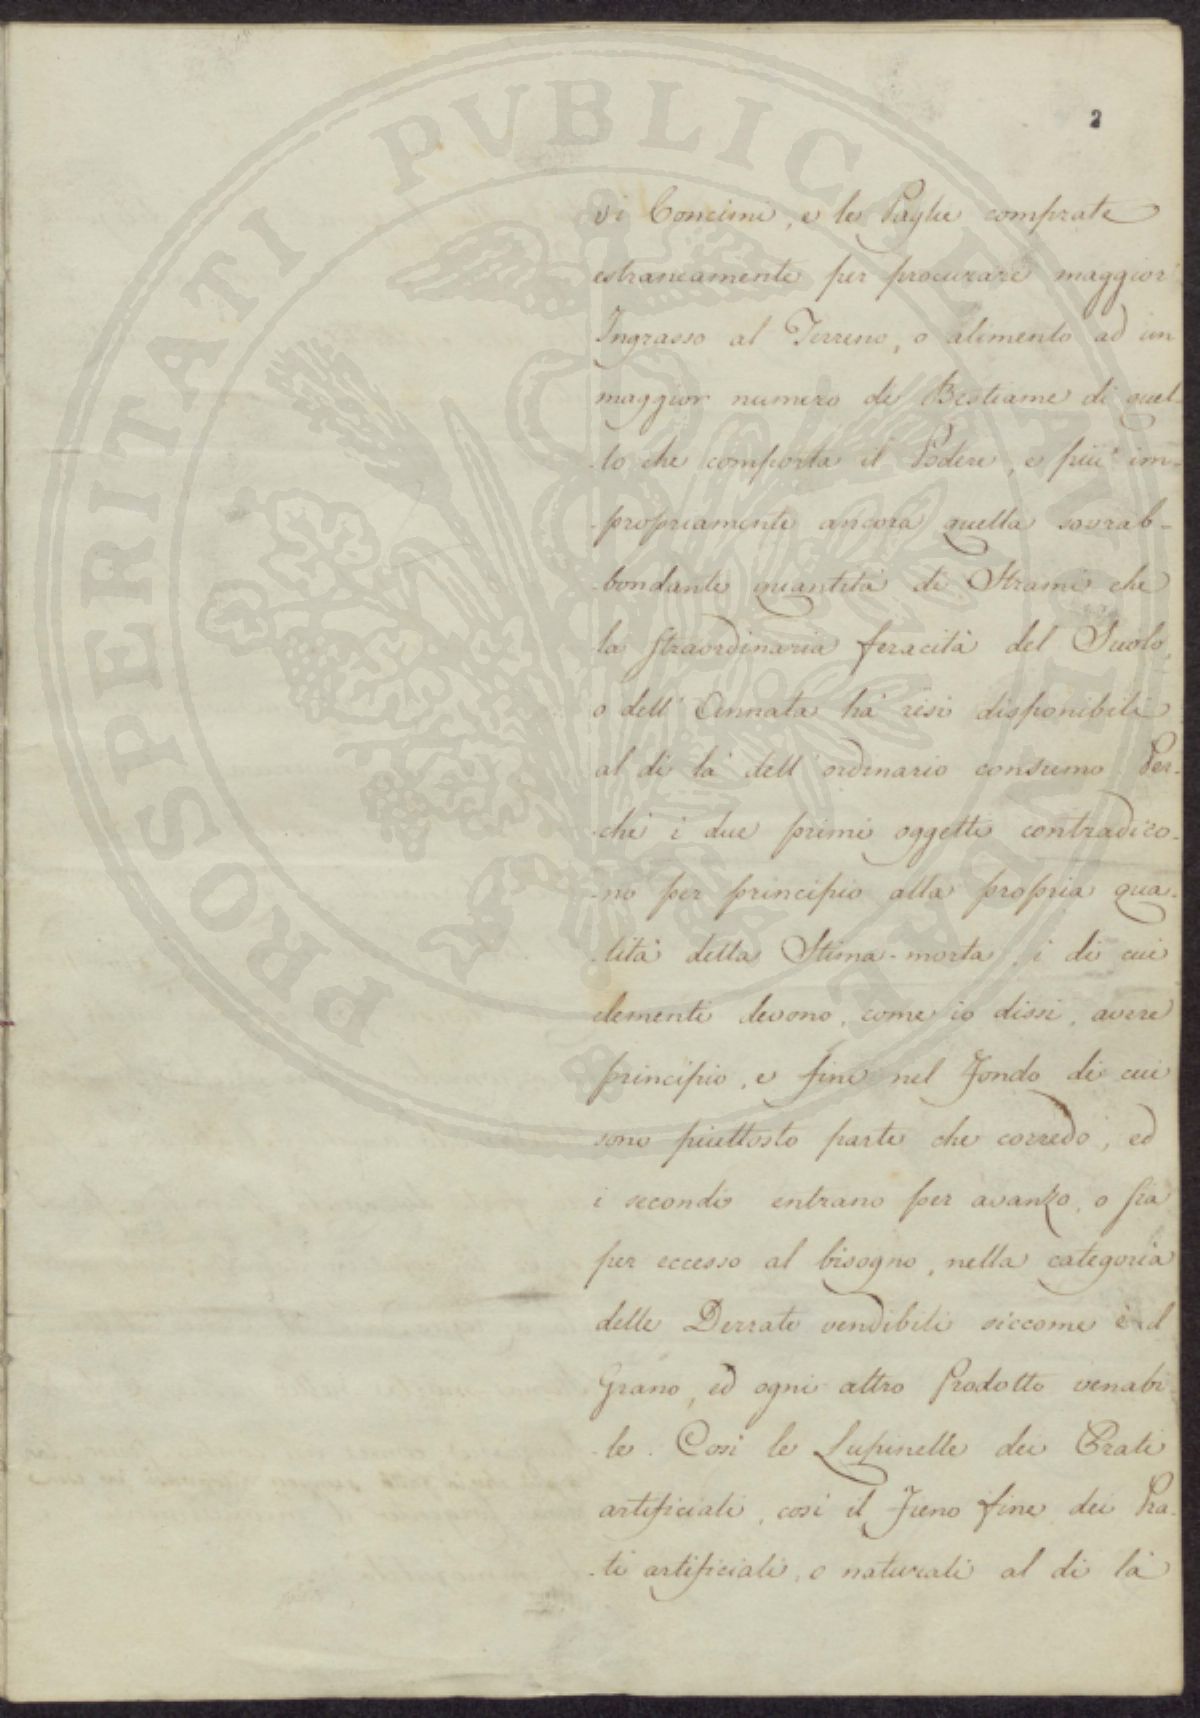 2
vi Concimi, e le Paglie comprate
estraneamente per procurare maggior
Ingrasso al Terreno, o alimento ad un
maggior numero di Bestiame di quel-
-lo che comporta il Podere, e più im-
-propriamente ancora quella sovrab-
-bondante quantità di Strami che
la straordinaria feracità del Suolo,
o dell' Annata hà resi disponibili
al di là dell' ordinario consumo. Per-
-chè i due primi oggetti contradico-
-no per principio alla propria qua-
-lità della Stima-morta, i di cui
elementi devono, come io dissi, avere
principio, e fine nel Fondo di cui
sono piuttosto parte che corredo, ed
i secondi entrano per avanzo, o sia
per eccesso al bisogno, nella categoria
delle Derrate vendibili siccome è il
Grano, ed ogni altro Prodotto venabi-
-le. Così le Lupinelle dei Prati
artificiali, così il Fieno fine dei Pra-
-ti artificiali, o naturali al di là
PROSPERITATI PVBLICAE AVGENDAE